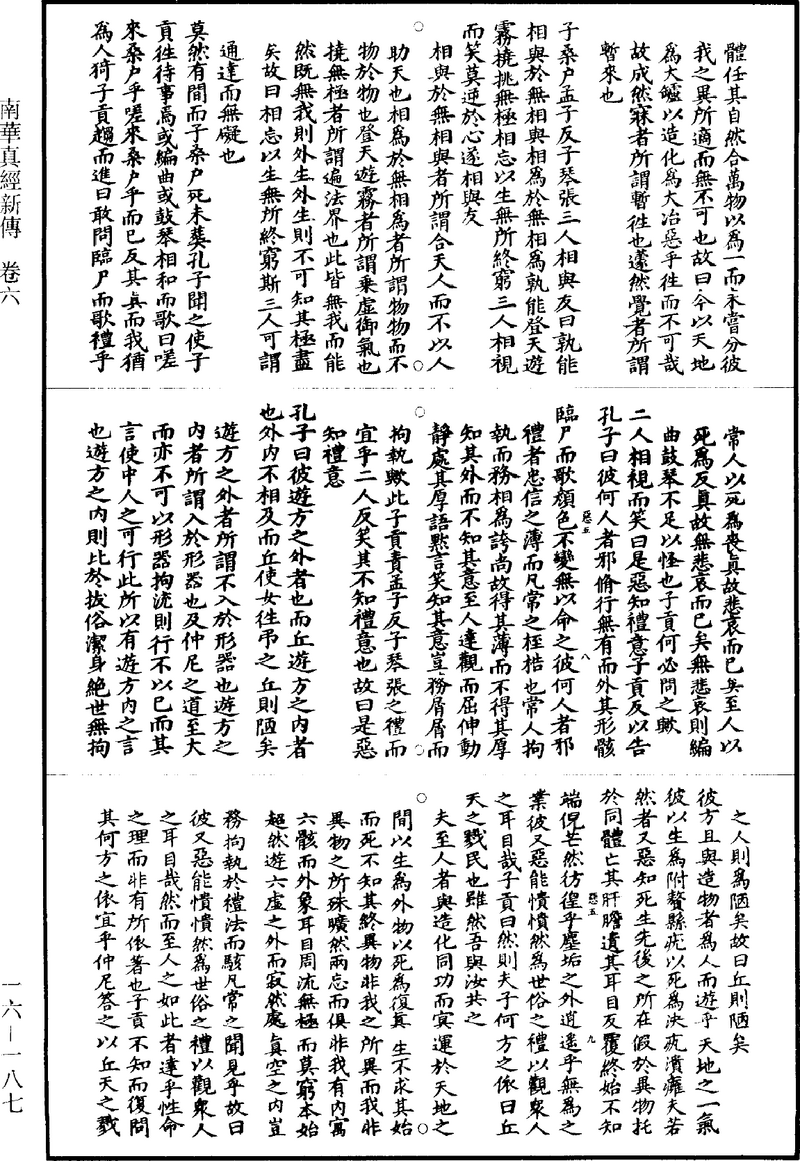 體任其自然合萬物以為一而未嘗分彼
我之異所適而無不可也故曰今以天地
為大鑪以造化為大冶惡乎往而不可哉
故成然寐者所謂暫往也蘧然覺者所謂
暫來也
子桑戶孟子反子琴張三人相與友曰孰能
相與於無相與相為於無相為孰能登天遊
霧撓挑無極相忘以生無所終窮三人相視
而笑莫逆於心遂相與友
相與於無相與者所謂合天人而不以人
助天也相為於無相為者所謂物物而不
物於物也登天遊霧者所謂乘虛御氣也
撓無極者所謂遍法界也此皆無我而能
然既無我則外生外生則不可知其極盡
矣故曰相忘以生無所終窮斯三人可謂
通達而無礙也
莫然有間而子桑戶死未葬孔子聞之使子
貢往侍事焉或編曲或鼓琴相和而歌曰嗟
來桑戶乎嗟來桑戶乎而已反其真而我猶
為人猗子貢趨而進曰敢問臨尸而歌禮乎
常人以死為喪真故悲哀而已矣至人以
死為反真故無悲哀而已矣無悲哀則編
曲鼓琴不足以怪也子貢何必問之歟
二人相視而笑曰是惡知禮意子貢反以告
孔子曰彼何人者邪脩行無有而外其形骸
臨尸而歌顏色不變無以命之彼何人者邪
禮者忠信之薄而凡常之桎梏也常人拘
執而務相為誇尚故得其薄而不得其厚
知其外而不知其意至人達觀而屈伸動
靜處其厚語默言笑知其意豈務屑屑而
拘執歟此子貢責孟子反子琴張之禮而
宜乎二人反笑其不知禮意也故曰是惡
知禮意
孔子曰彼遊方之外者也而丘遊方之內者
也外內不相及而丘使女往弔之丘則陋矣
遊方之外者所謂不入於形器也遊方之
內者所謂入於形器也及仲尼之道至大
而亦不可以形器拘流則行不以已而其
言使中人之可行此所以有遊方內之言
也遊方之內則比於拔俗潔身絕世無拘
之人則為陋矣故曰丘則陋矣
彼方且與造物者為人而遊乎天地之一氣
彼以生為附贅縣疣以死為決疣潰癰夫若
然者又惡知死生先後之所在假於異物托
於同體亡其肝膽遺其耳目反覆終始不知
端倪芒然彷徨乎塵垢之外逍遙乎無為之
業彼又惡能憒憒然為世俗之禮以觀眾人
之耳目哉子貢曰然則夫子何方之依曰丘
天之戮民也雖然吾與汝共之
夫至人者與造化同功而冥運於天地之
間以生為外物以死為復真生不求其始
而死不知其終異物非我之所異而我非
異物之所殊曠然兩忘而俱非我有內寓
六骸而外象耳目周流無極而莫窮本始
超然遊六虛之外而寂然處真空之內豈
務拘執於禮法而駭凡常之聞見乎故曰
彼又惡能憒憒然為世俗之禮以觀眾人
之耳目哉然而至人之如此者達乎性命
之理而非有所依著也子貢不知而復問
其何方之依宜乎仲尼答之以丘天之戮
惡五
八
惡五
九
南華真經新傳 卷六
一六—一八七